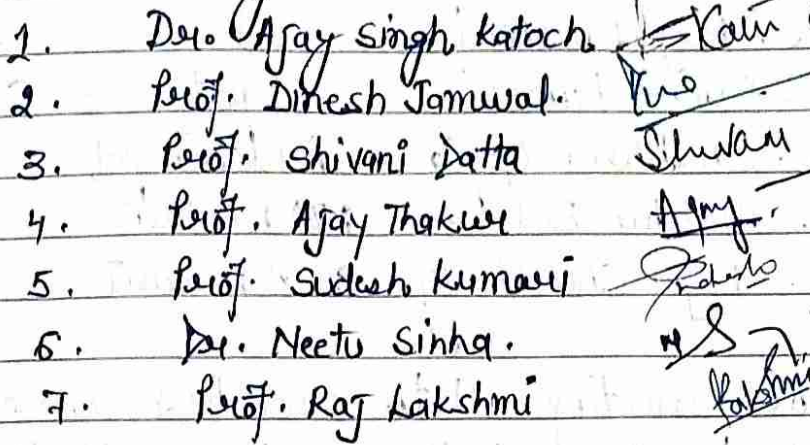 1. Dr. Ajay Singh Katoch
2. Prof. Dinesh Jamwal.
3. Prof. Shivani Datta Shivani
4. Prof. Ajay Thakur Ajay
5. Prof. Sudesh Kumari
6. Dr. Neetu Sinha. NS
7. Prof. Raj Lakshmi Lakshmi